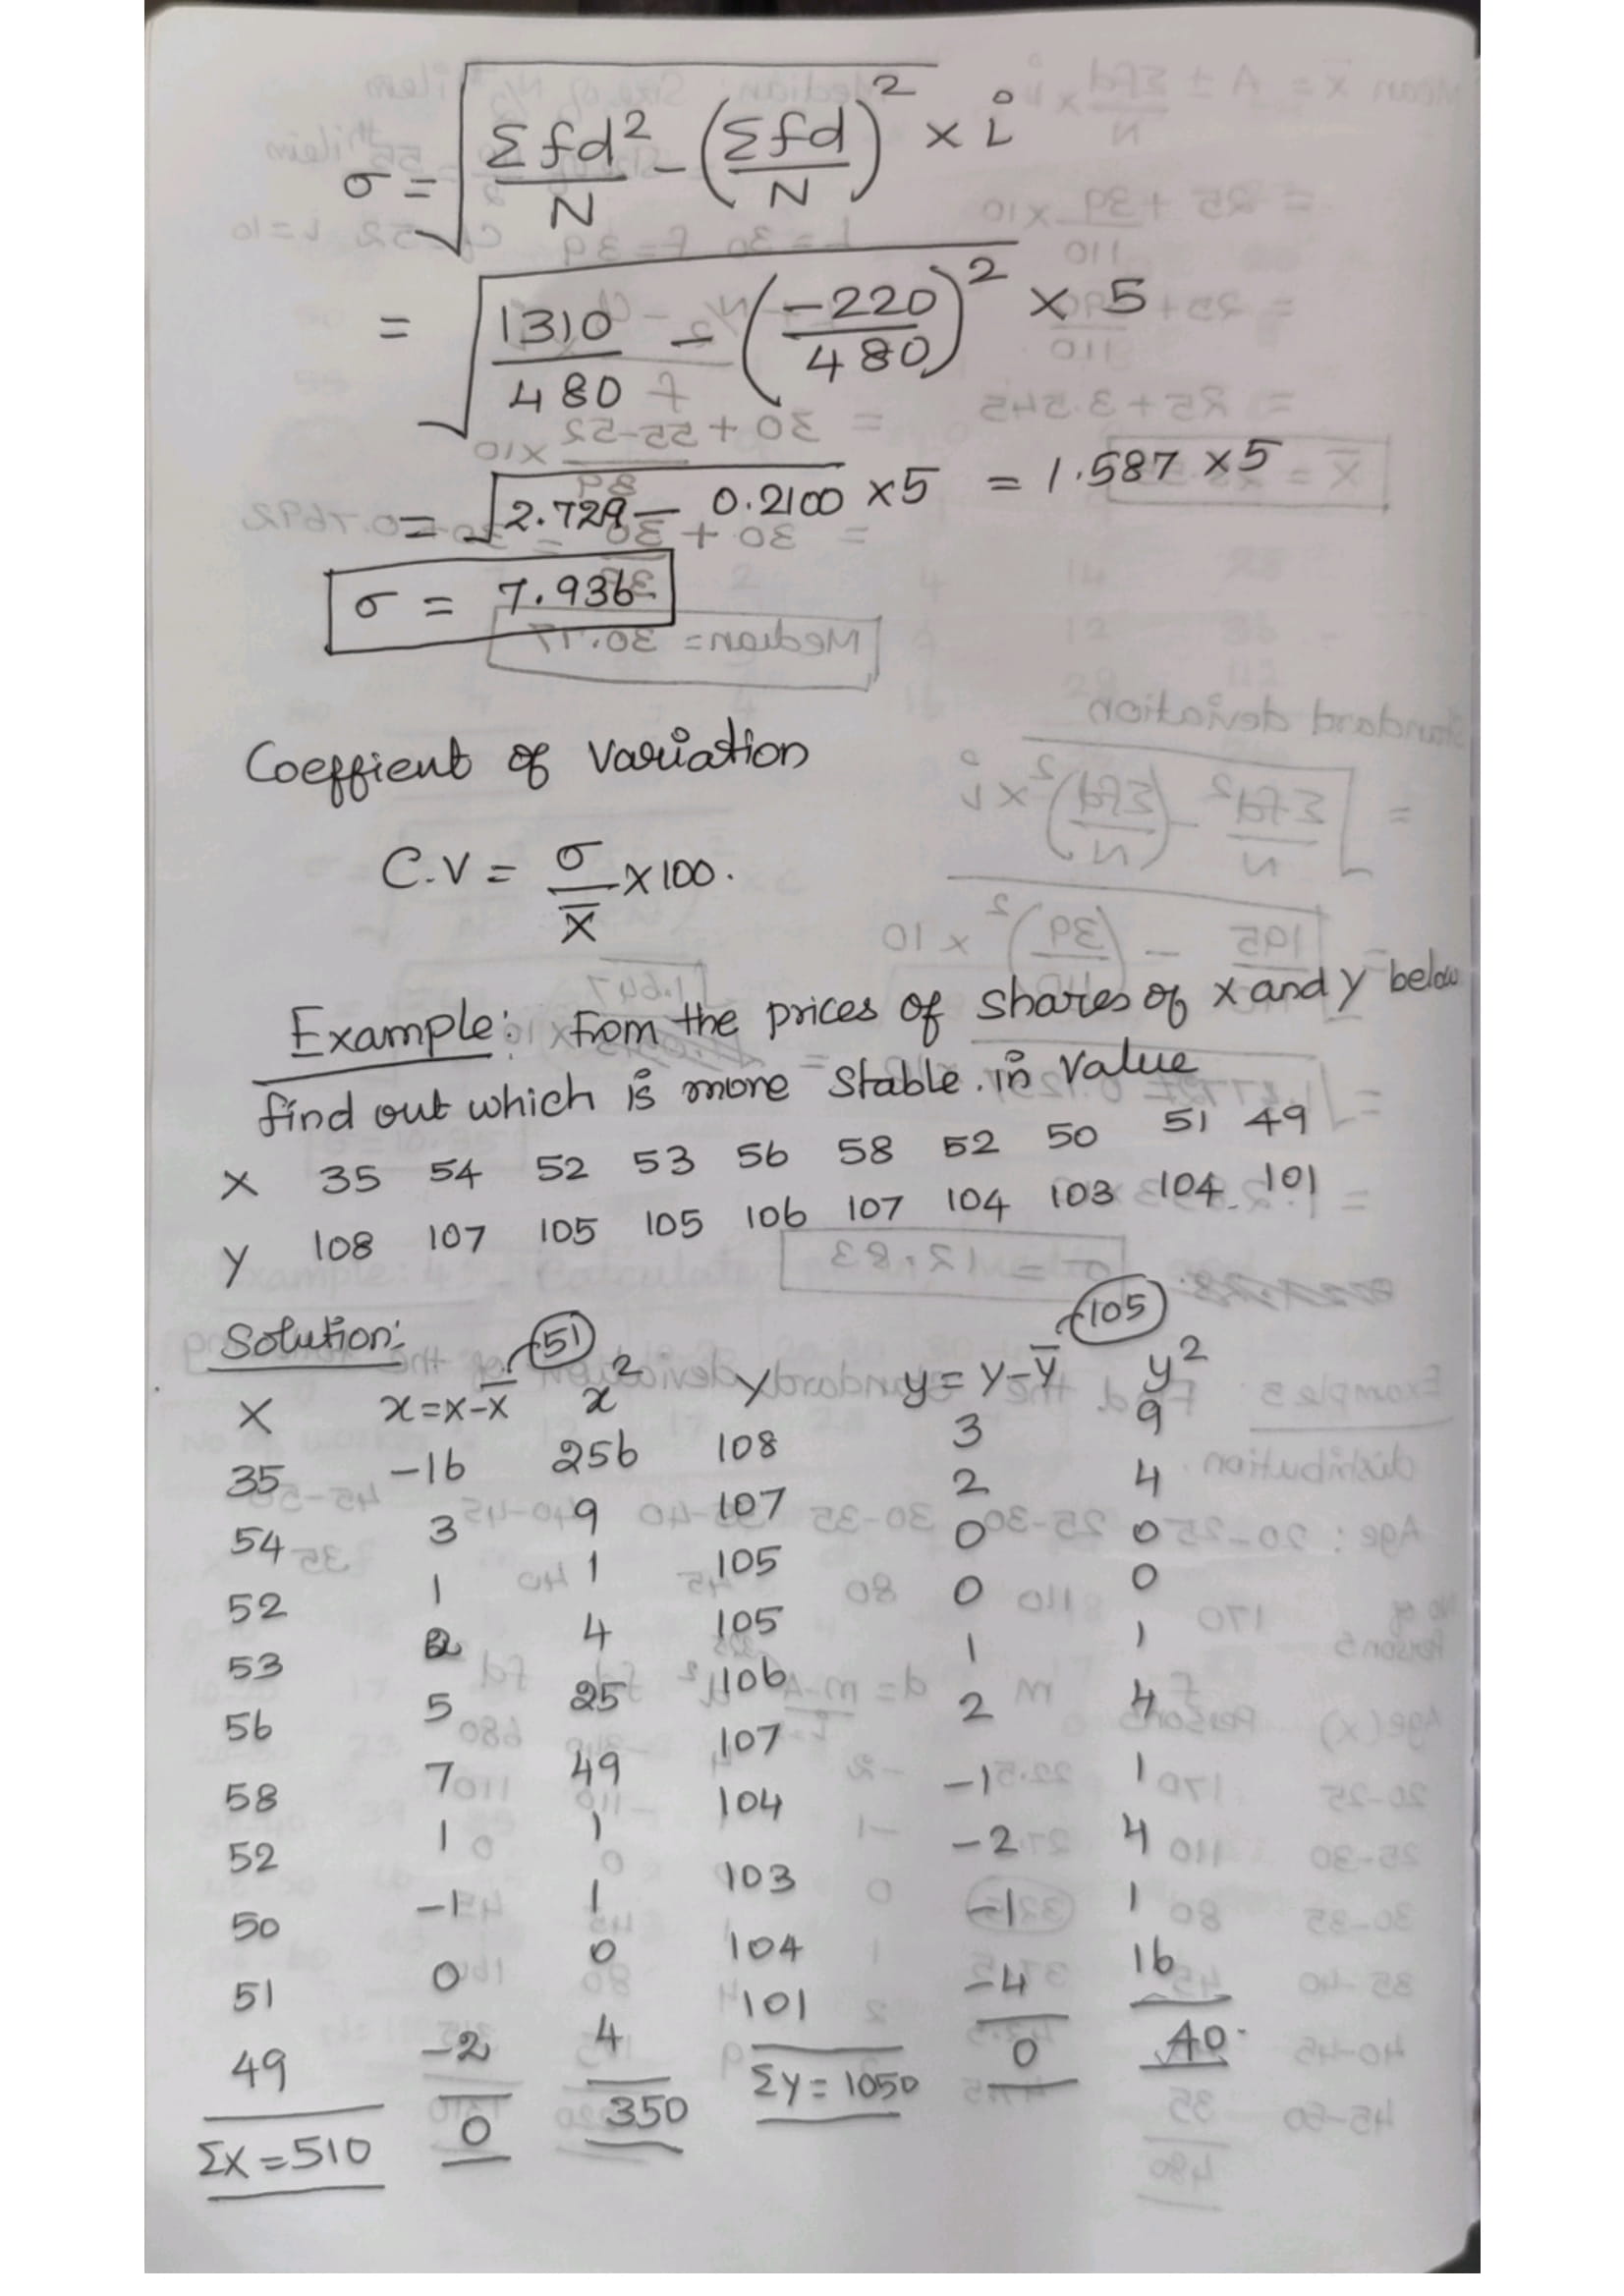 σ = √(Σfd²/N − (Σfd/N)²) × i
= √(1310/480 − (−220/480)²) × 5
= √(2.729 − 0.2100) × 5 = 1.587 × 5
σ = 7.936
Coeffient of Variation
C.V = σ/X̄ × 100.
Example: From the prices of shares of X and Y below
find out which is more stable in Value
X 35 54 52 53 56 58 52 50 51 49
Y 108 107 105 105 106 107 104 103 104 101
Solution: 51 105
X x=X-X̄ x² Y y=Y-Ȳ y²
35 -16 256 108 3 9
54 3 9 107 2 4
52 1 1 105 0 0
53 2 4 105 0 0
56 5 25 106 1 1
58 7 49 107 2 4
52 1 1 104 -1 1
50 -1 1 103 -2 4
51 0 0 104 -1 1
49 -2 4 101 -4 16
ΣX=510 0 350 ΣY=1050 0 40